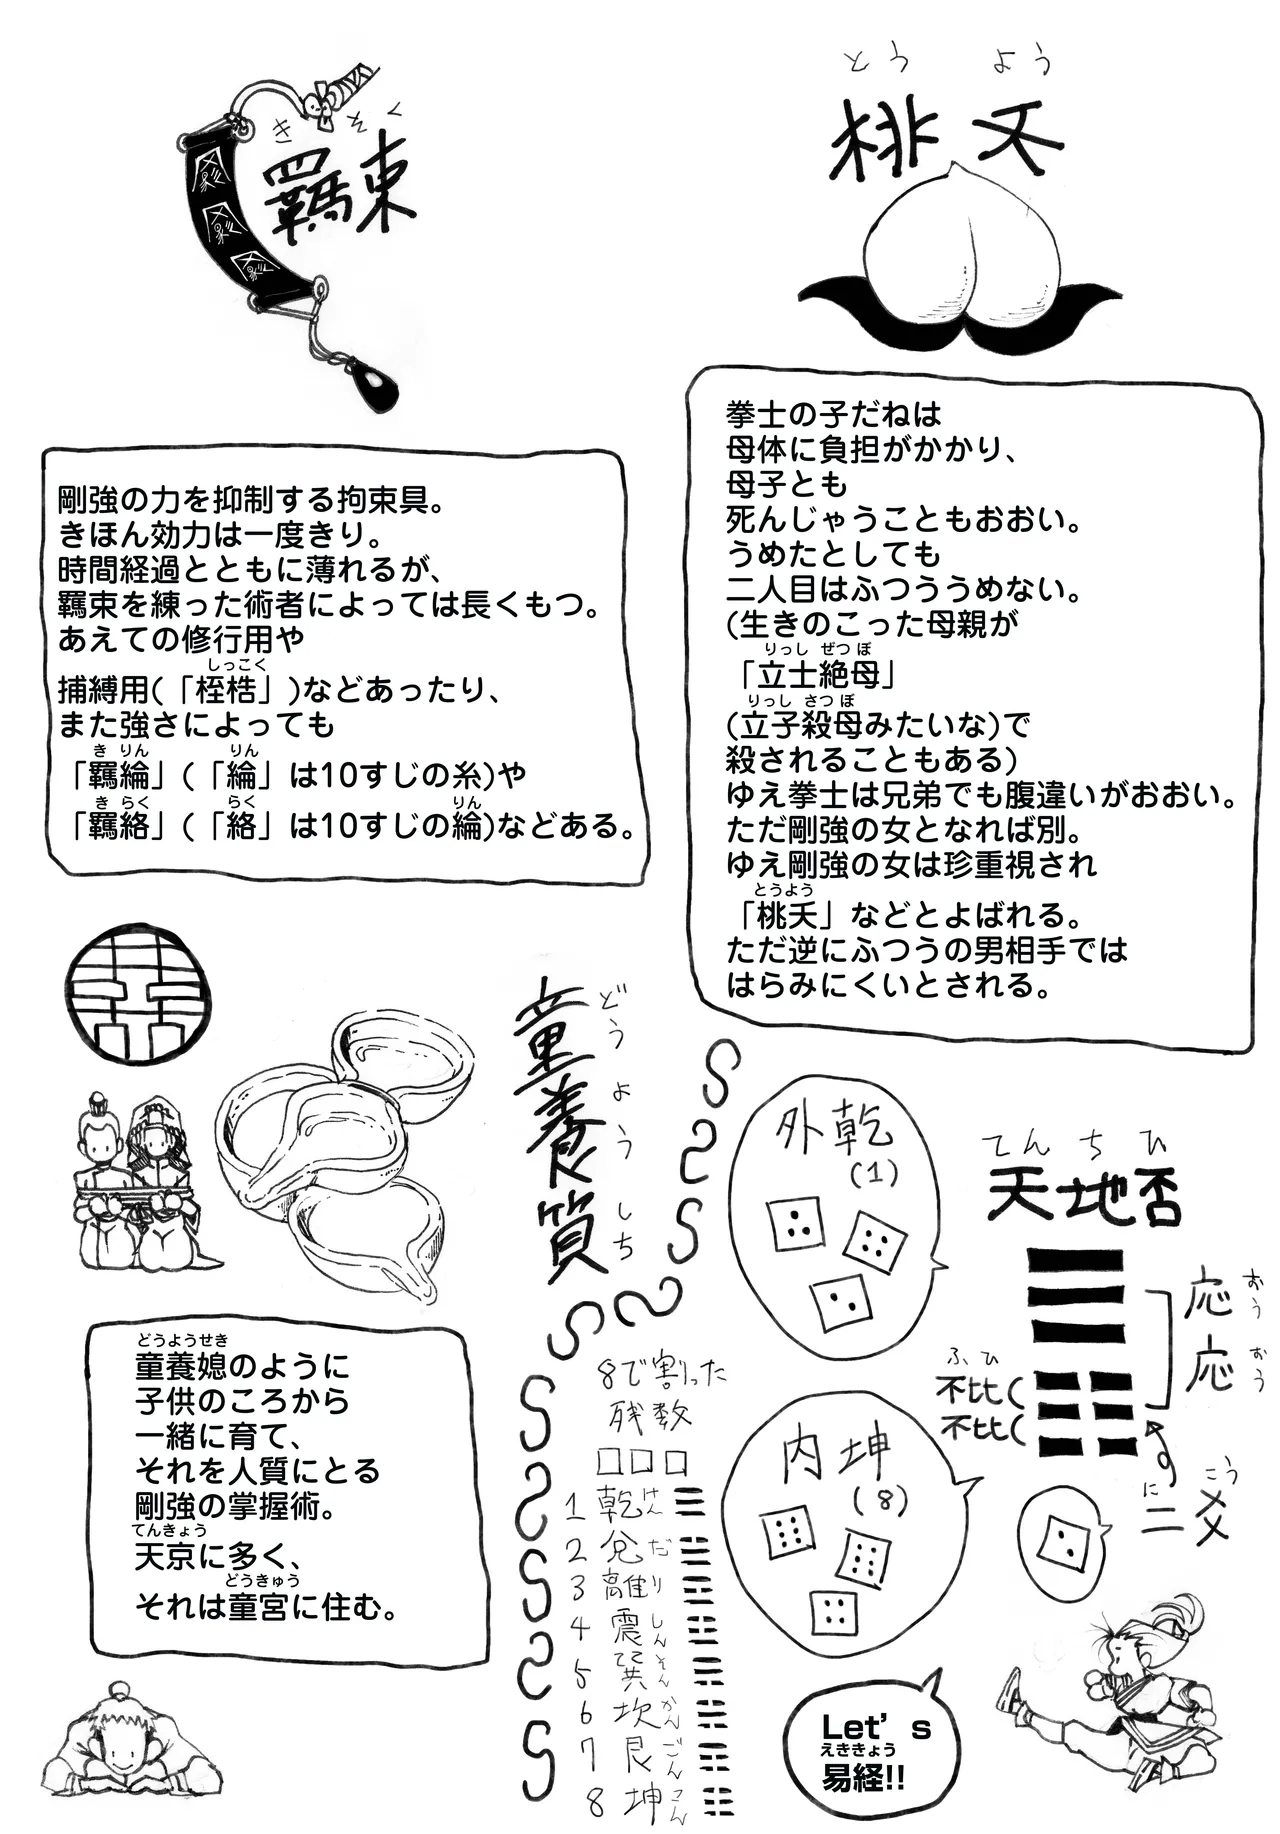 とうよう
桃夭
きそく
羈束
拳士の子だねは
母体に負担がかかり、
母子とも
死んじゃうこともおおい。
うめたとしても
二人目はふつううめない。
(生きのこった母親が
りっしぜつぼ
「立士絶母」
りっしさつぼ
(立子殺母みたいな)で
殺されることもある)
ゆえ拳士は兄弟でも腹違いがおおい。
ただ剛強の女となれば別。
ゆえ剛強の女は珍重視され
とうよう
「桃夭」などとよばれる。
ただ逆にふつうの男相手では
はらみにくいとされる。
剛強の力を抑制する拘束具。
きほん効力は一度きり。
時間経過とともに薄れるが、
羈束を練った術者によっては長くもつ。
あえての修行用や
しっこく
捕縛用(「桎梏」)などあったり、
また強さによっても
きりん りん
「羈綸」(「綸」は10すじの糸)や
きらく らく りん
「羈絡」(「絡」は10すじの綸)などある。
童養質
どうようしち
どうようせき
童養媳のように
子供のころから
一緒に育て、
それを人質にとる
剛強の掌握術。
てんきょう
天京に多く、
どうきゅう
それは童宮に住む。
外乾
(1)
てんちひ
天地否
応 おう
応 おう
ふひ
不比(
不比(
にこう
二爻
内坤
(8)
8で割った
残数
□□□
1 乾 けん ☰
2 兌 だ ☱
3 離 り ☲
4 震 しん ☳
5 巽 そん ☴
6 坎 かん ☵
7 艮 ごん ☶
8 坤 こん ☷
Let's
えききょう
易経!!